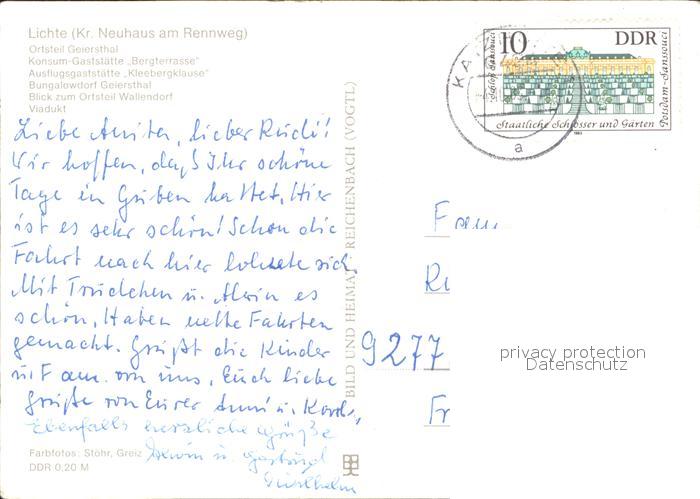 Lichte (Kr. Neuhaus am Rennweg)
Ortsteil Geiersthal
Konsum-Gaststätte „Bergterrasse"
Ausflugsgaststätte „Kleebergklause"
Bungalowdorf Geiersthal
Blick zum Ortsteil Wallendorf
Viadukt
Liebe Anita, lieber Rudi!
Wir hoffen, daß Ihr schöne
Tage in Guben hattet. Hier
ist es sehr schön! Schon die
Fahrt nach hier lohnte sich.
Mit Trudchen u. Alwin es
schön. Haben nette Fahrten
gemacht. Grüßt die Kinder
u. Fam. von uns. Euch liebe
Grüße von Eurer Anni u. Kord.,
Ebenfalls herzliche Grüße
Alwin u. Gertrud
Farbfotos: Stöhr, Greiz
DDR 0,20 M
BILD UND HEIMAT REICHENBACH (VOGTL)
10 DDR
Schloß Sanssouci
Potsdam-Sanssouci
Staatliche Schlösser und Gärten
1983
a
Fam
Ru
9277
Fr
privacy protection
Datenschutz